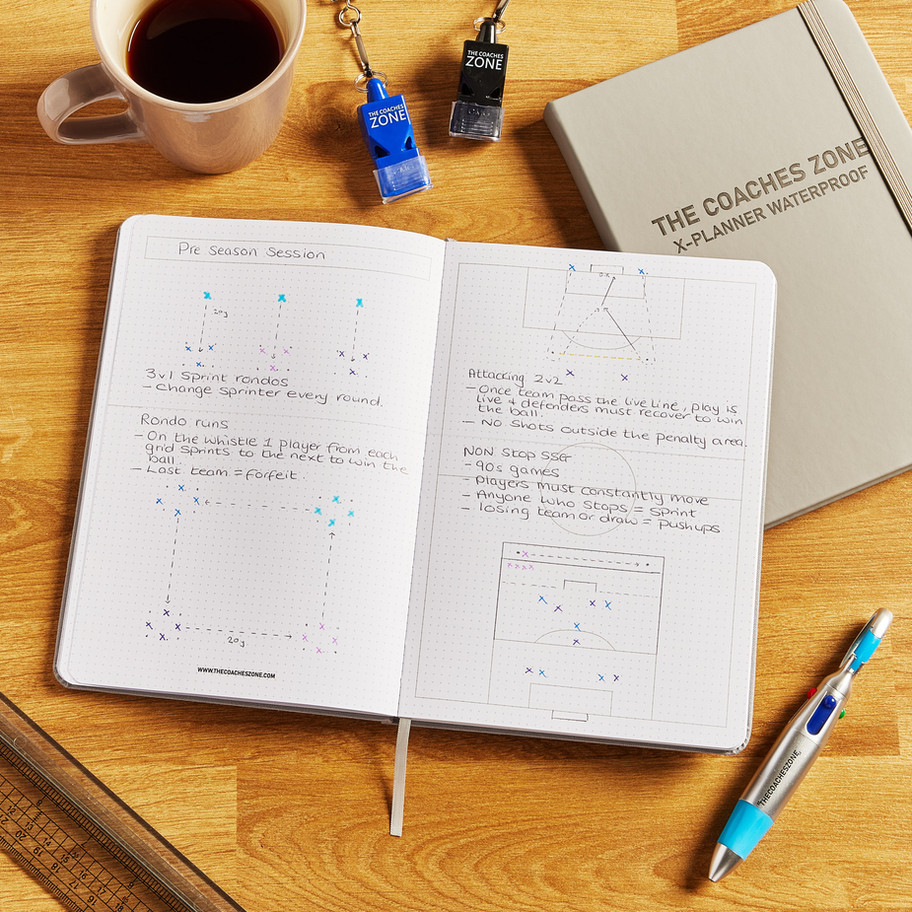 THE COACHES
ZONE
THE COACHES
ZONE
THE COACHES ZONE
X-PLANNER WATERPROOF
Pre Season Session
20y
3v1 Sprint rondos
- Change sprinter every round.
Rondo runs
- On the whistle 1 player from each
grid sprints to the next to win the
ball.
- Last team = forfeit.
20y
WWW.THECOACHESZONE.COM
Attacking 2v2
- Once team pass the live line, play is
live & defenders must recover to win
the ball.
- No shots outside the penalty area.
Non Stop SSG
- 90s games
- Players must constantly move
- Anyone who stops = sprint
- losing team or draw = pushups
THECOACHESZONE
12
13
14
15
16